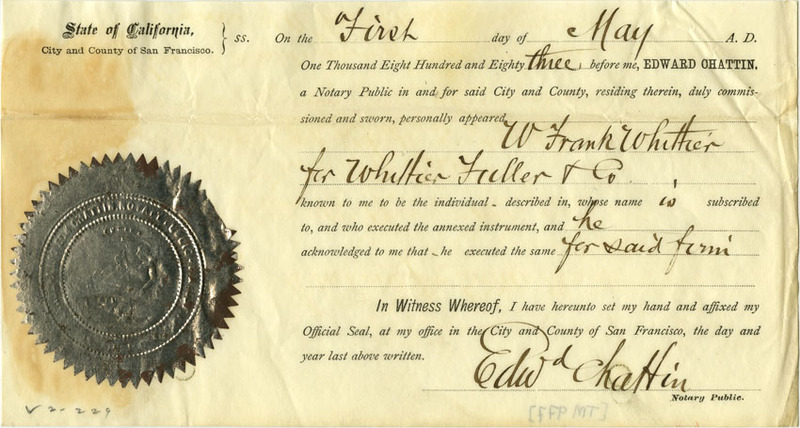 State of California,
City and County of San Francisco.
} ss.
On the First day of May A. D.
One Thousand Eight Hundred and Eighty three, before me, EDWARD CHATTIN,
a Notary Public in and for said City and County, residing therein, duly commis-
sioned and sworn, personally appeared
W Frank Whittier
for Whittier Fuller & Co
known to me to be the individual - described in, whose name is subscribed
to, and who executed the annexed instrument, and he
acknowledged to me that - he executed the same for said firm
In Witness Whereof, I have hereunto set my hand and affixed my
Official Seal, at my office in the City and County of San Francisco, the day and
year last above written.
Edwd Chattin
Notary Public.
V 2-229
[FFP MT]